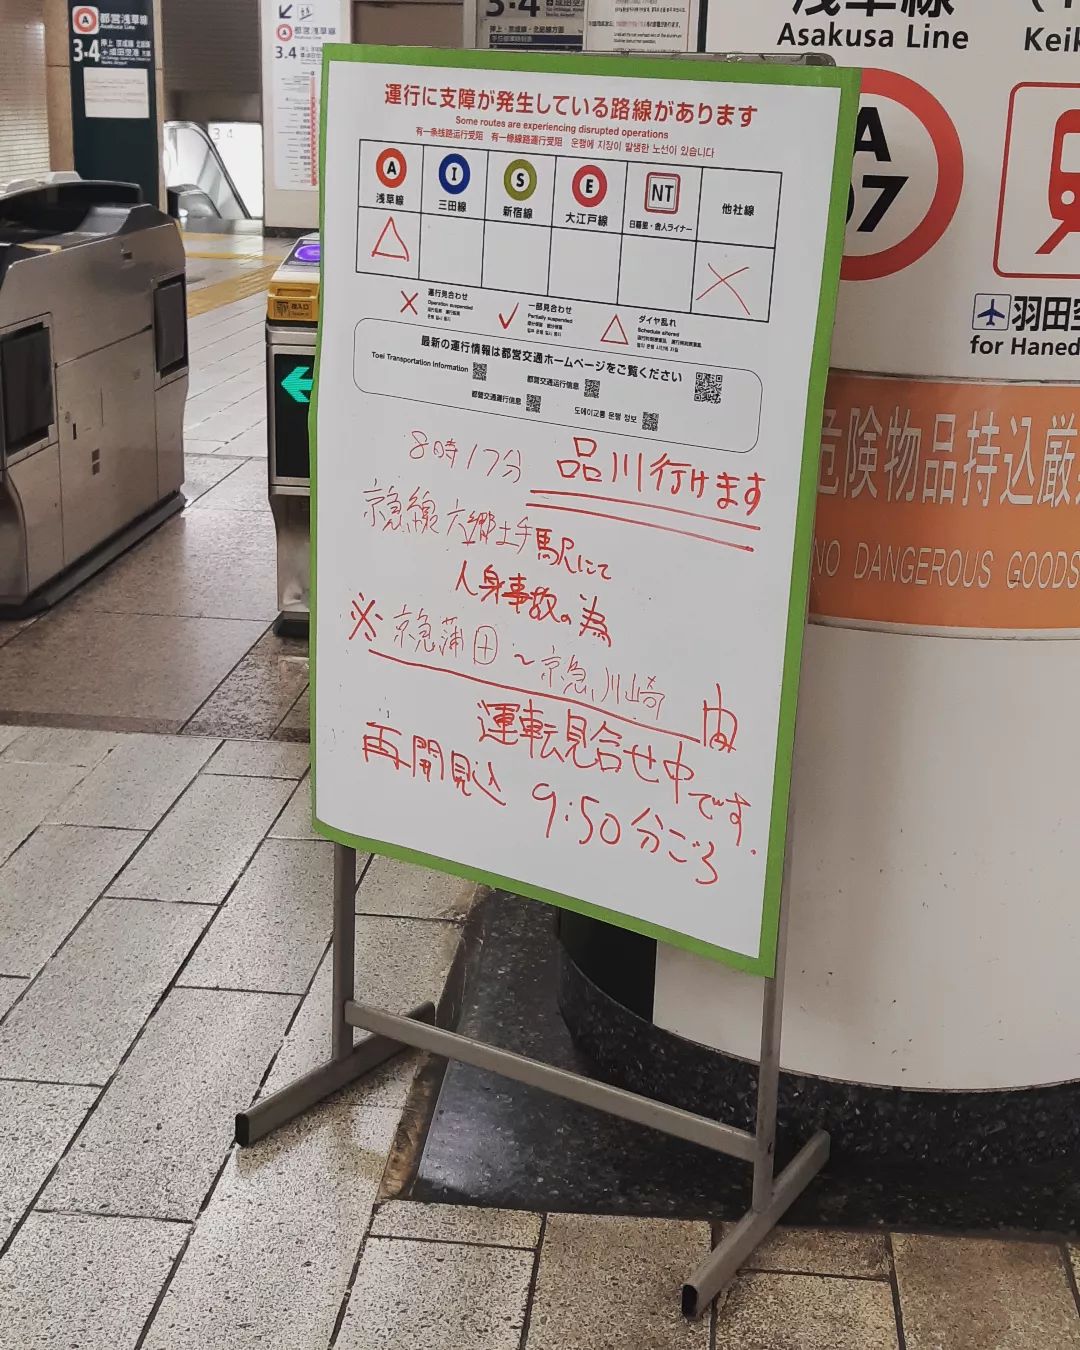 A 都営浅草線
Asakusa Line
3・4
都営浅草線
3・4
3・4
3 4
Asakusa Line
Keik
A
07
羽田空
for Haned
危険物品持込厳
NO DANGEROUS GOODS
運行に支障が発生している路線があります
Some routes are experiencing disrupted operations
有一条线路运行受阻 有一條線路運行受阻 운행에 지장이 발생한 노선이 있습니다
A I S E NT
浅草線 三田線 新宿線 大江戸線 日暮里・舎人ライナー 他社線
△ ×
× 運行見合わせ ✓ 一部見合わせ △ ダイヤ乱れ
Operation suspended Partially suspended Schedule altered
最新の運行情報は都営交通ホームページをご覧ください
Toei Transportation Information 都营交通运行信息
都營交通運行信息 도에이교통 운행 정보
8時17分 品川行けます
京急線六郷土手駅にて
人身事故の為
※京急蒲田~京急川崎 間
運転見合せ中です.
再開見込 9:50分ごろ